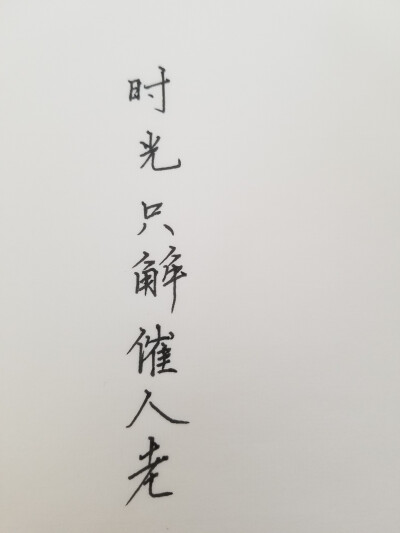 时光只解催人老